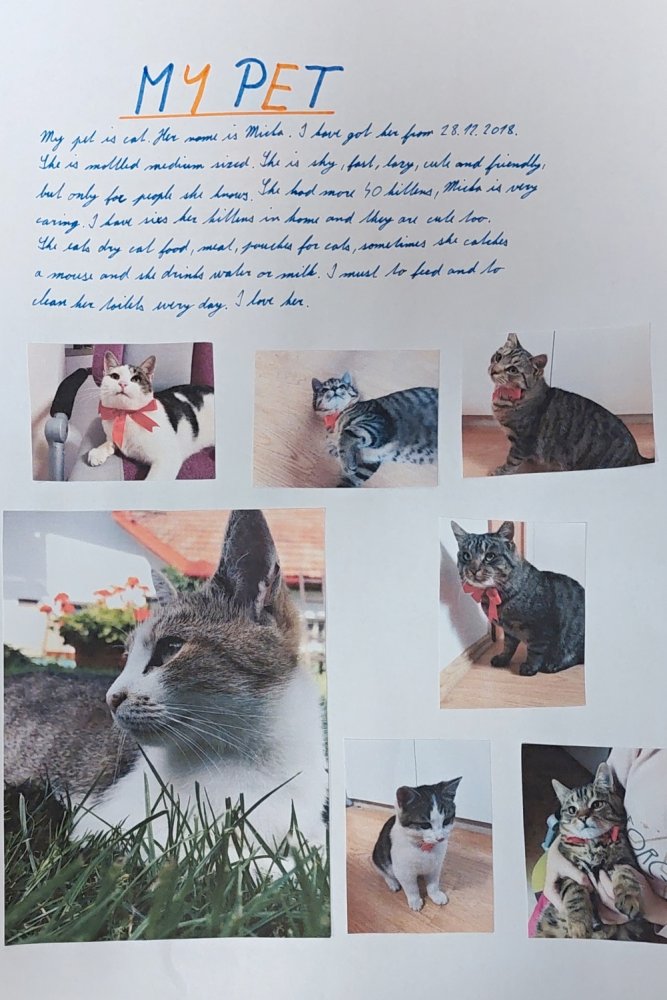 MY PET
My pet is cat. Her name is Micka. I have got her from 28.12.2018.
She is mottled medium sized. She is shy, fast, lazy, cute and friendly,
but only for people she knows. She had more 40 kittens, Micka is very
caring. I have sixs her kittens in home and they are cute too.
She eats dry cat food, meat, pouches for cats, sometimes she catches
a mouse and she drinks water or milk. I must to feed and to
clean her toilets every day. I love her.